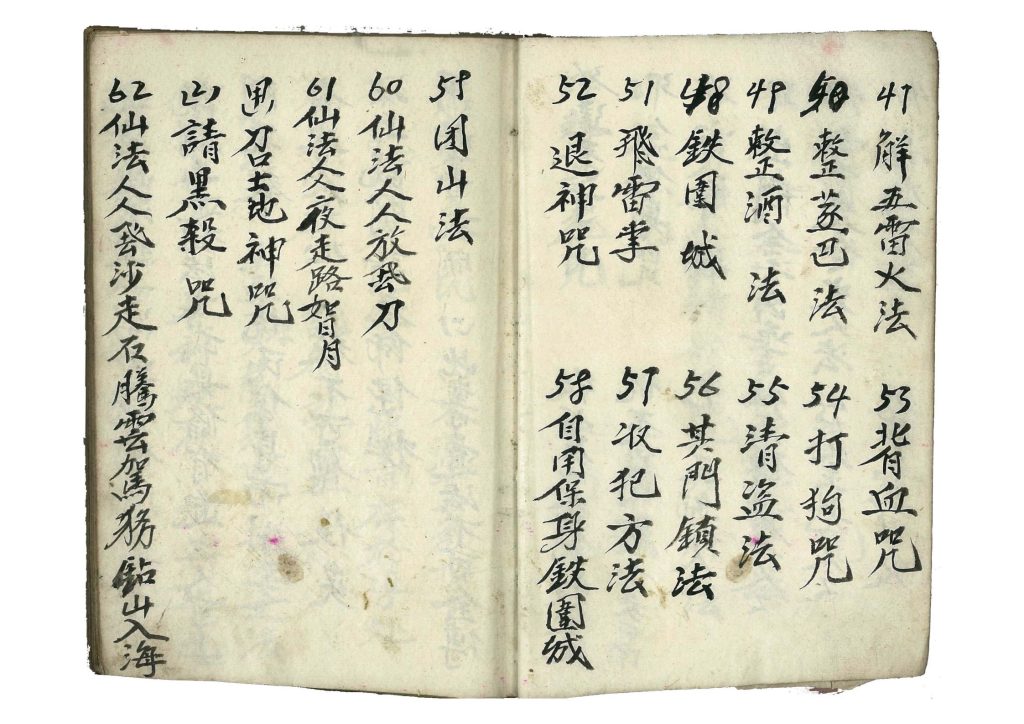 47 解五雷火法
整蓌巴法
49 整酒 法
48 鉄圍城
51 飛雷掌
52 退神咒
53 背血咒
54 打狗咒
55 清盗法
56 其門鎖法
57 收犯方法
58 自用保身鉄圍城
59 团山法
60 仙法人人放飛刀
61 仙法人夜走路如日月
召土地神咒
请黑殺咒
62 仙法人人飛沙走石騰雲駕務鉆山入海